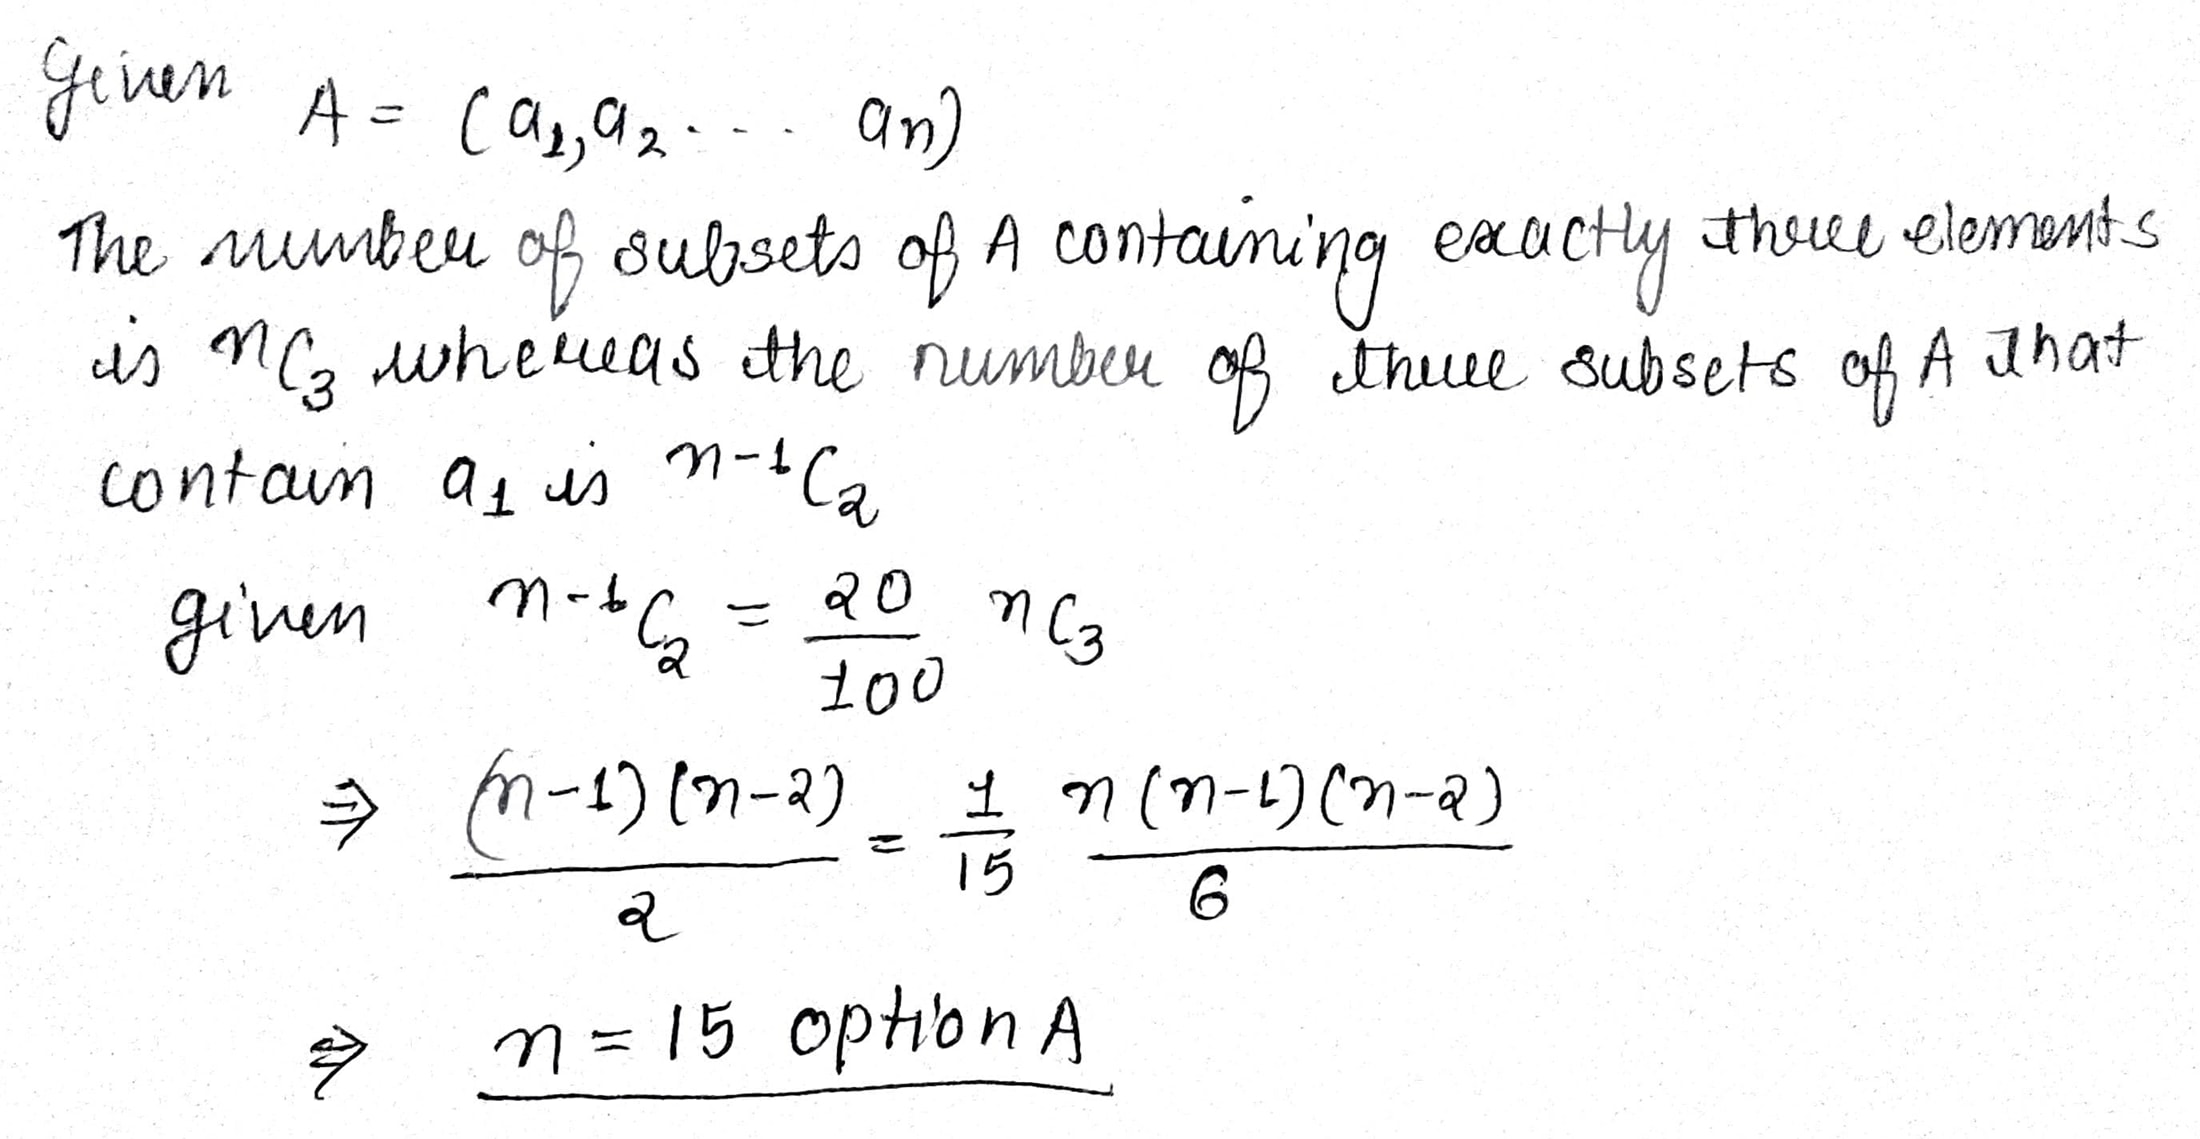 Given A = (a₁, a₂ . - - . an)
The number of subsets of A containing exactly three elements
is ⁿC₃ whereas the number of three subsets of A that
contain a₁ is ⁿ⁻¹C₂
given ⁿ⁻¹C₂ = 20/100 ⁿC₃
⇒ (n-1)(n-2)/2 = 1/15 n(n-1)(n-2)/6
⇒ n = 15 option A